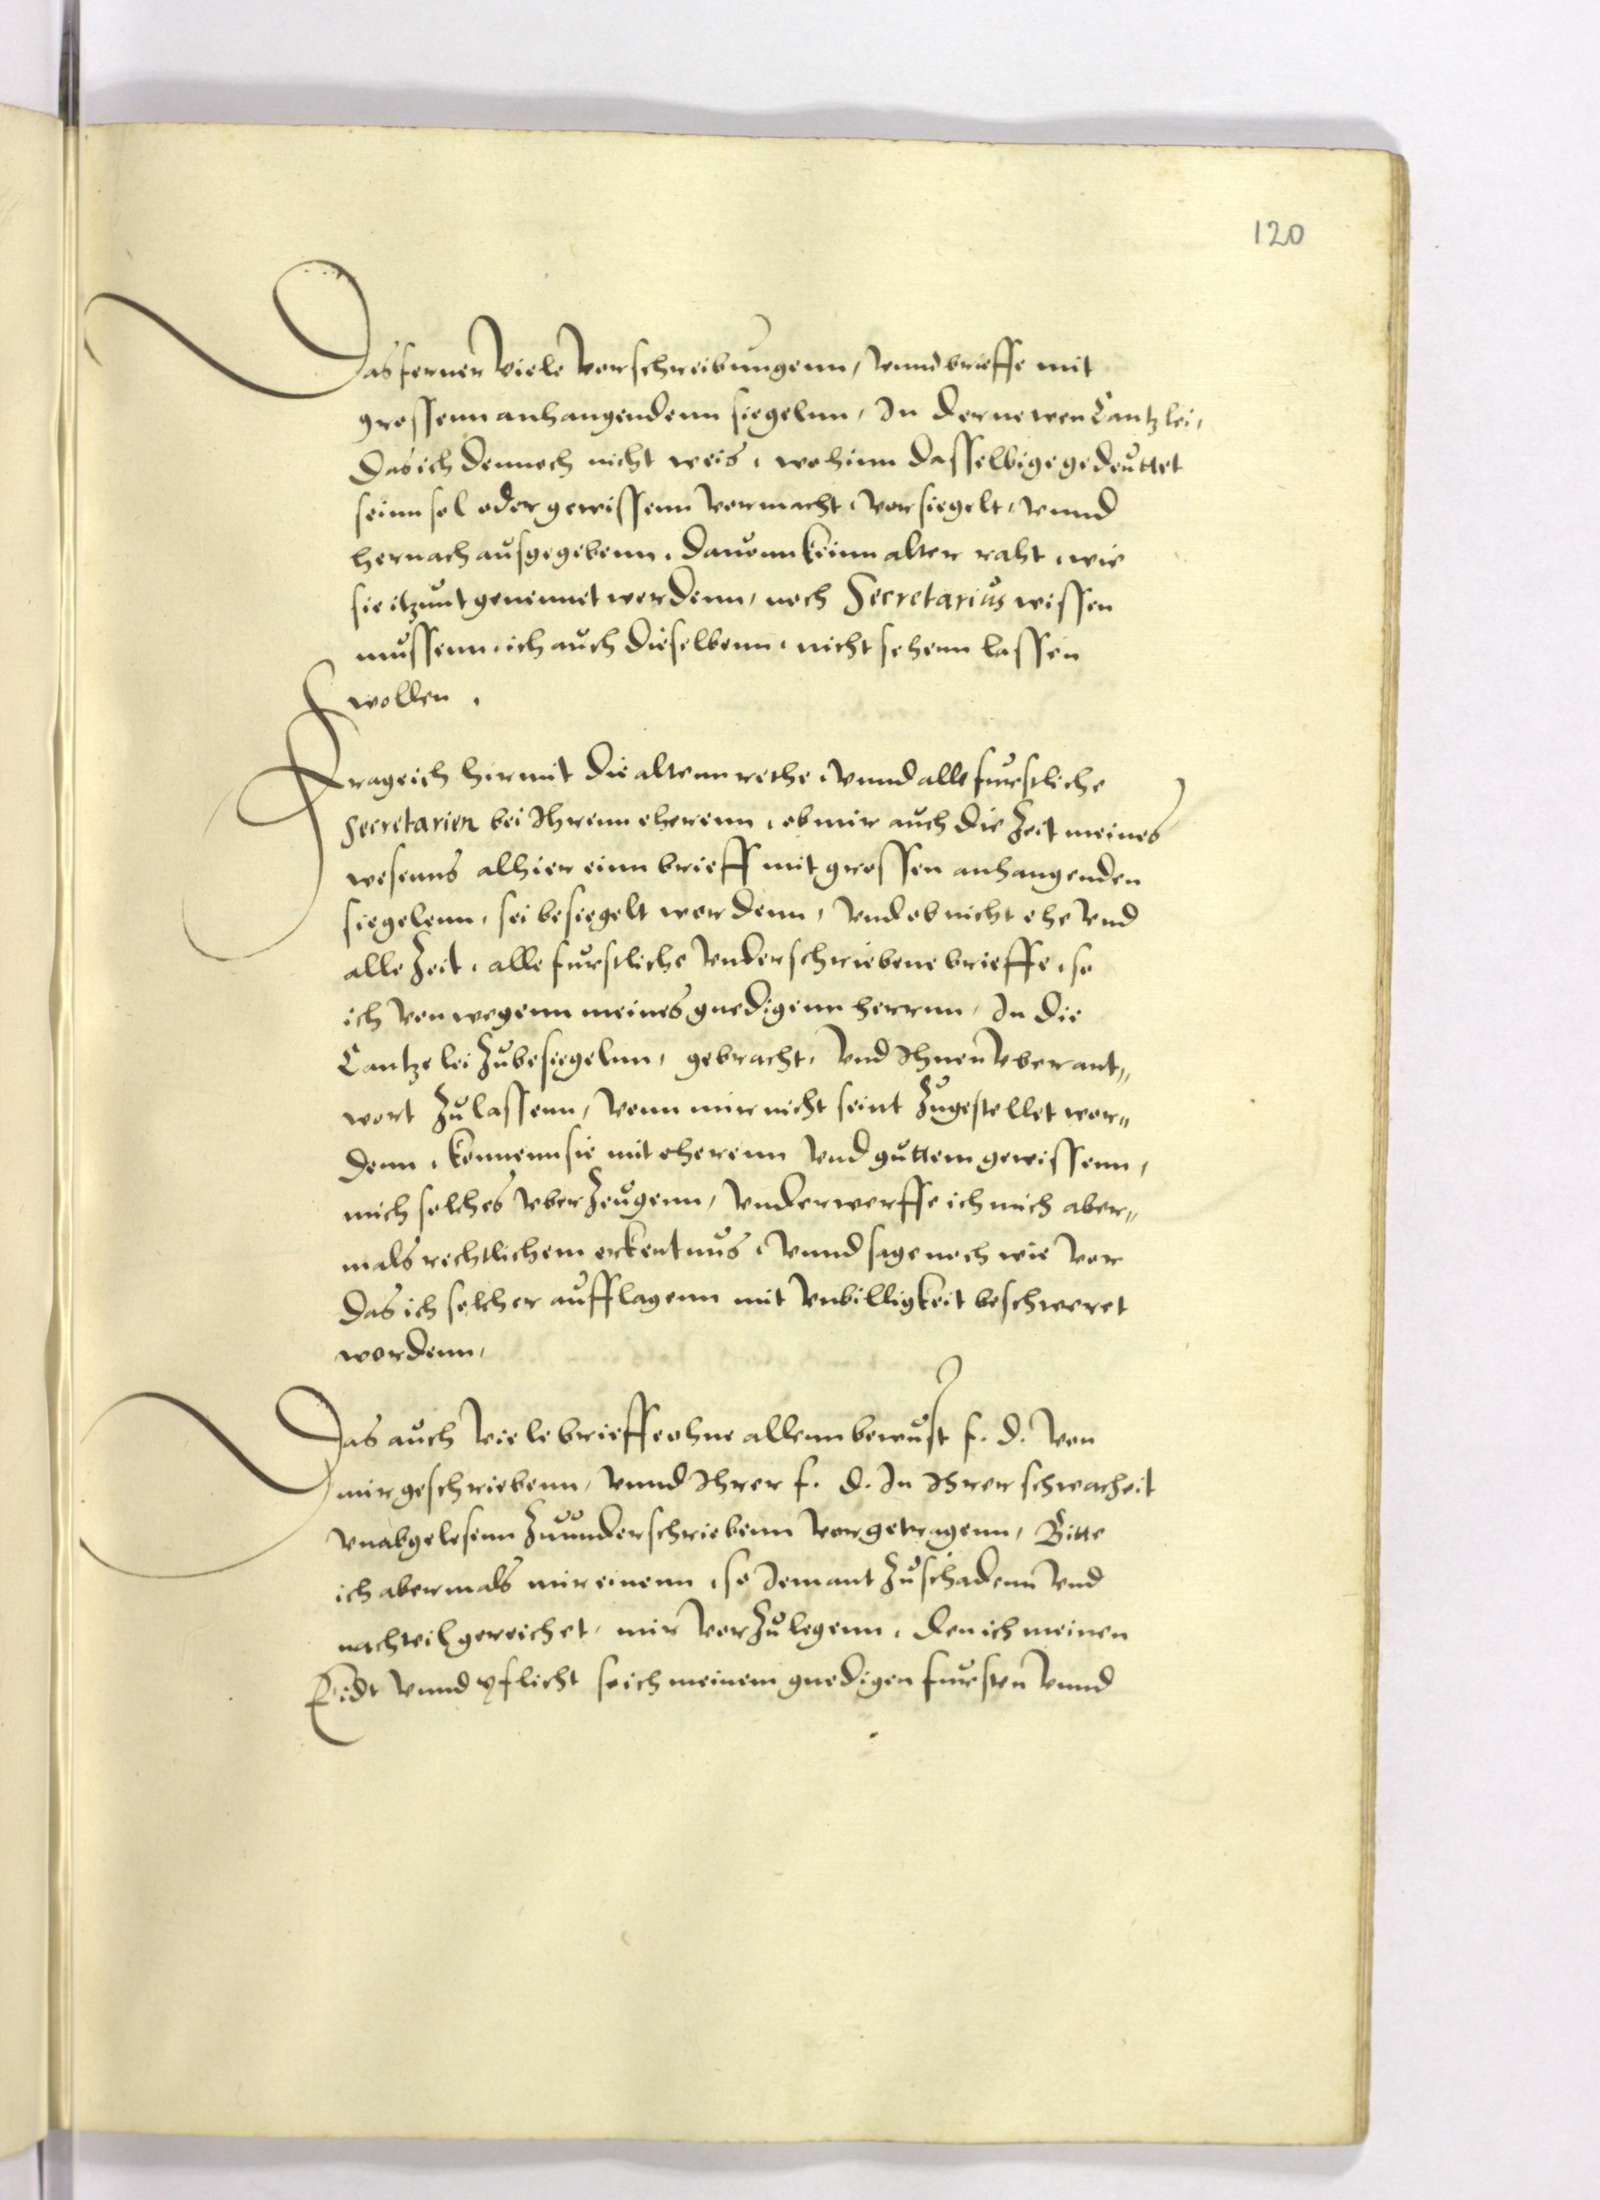 120
Das ferner viele vorschreibungenn, vnnd brieffe mit
grossenn anhangendenn siegelnn, In der newen Cantzlei,
Das ich dennoch nicht weis, wohinn dasselbige gedeuttet
seinn sol oder gewissenn vormacht, vorsiegelt, vnnd
hernach ausgegebenn, dauonn keinn alter raht, wie
sie itzunt genennet werdenn, noch Secretarius wissen
mussenn, ich auch dieselbenn, nicht sehenn lassen
wollen.
Frage ich hirmit die altenn rethe, vnnd alle furstliche
Secretarien bei Ihrenn eherenn, ob mir auch die Zeit meines
wesenns alhier einn brieff mit grossen anhangenden
siegelenn, sei besiegelt wordenn, vnd ob nicht ehe vnd
alle Zeit, alle furstliche vnderschriebene brieffe, so
ich von wegenn meines gnedigenn herrnn, In die
Cantzelei Zubesiegelnn, gebracht, vnd Ihnen vberant„
wort Zulassenn, vonn mir nicht seint Zugestellet wor„
denn, konnenn sie mit eherenn vnd guttem gewissenn,
mich solches vberzeugenn, vnderwerffe ich mich aber„
mals rechtlichem erkentnus, vnnd sage noch wie vor
das ich solcher aufflagenn mit vnbilligkeit beschweret
wordenn,
Das auch viele brieffe ohne allenn bewust f. d. von
mir geschriebenn, vnnd Ihrer f. d. In Ihrer schwacheit
vnabgelesenn Zuunderschriebenn vorgetragenn, Bitte
ich abermals mir einenn, so Jemant Zuschadenn vnd
nachteil gereichet, mir vorzulegenn, den ich meinen
Eidt vnnd pflicht so ich meinem gnedigen fursten vnnd